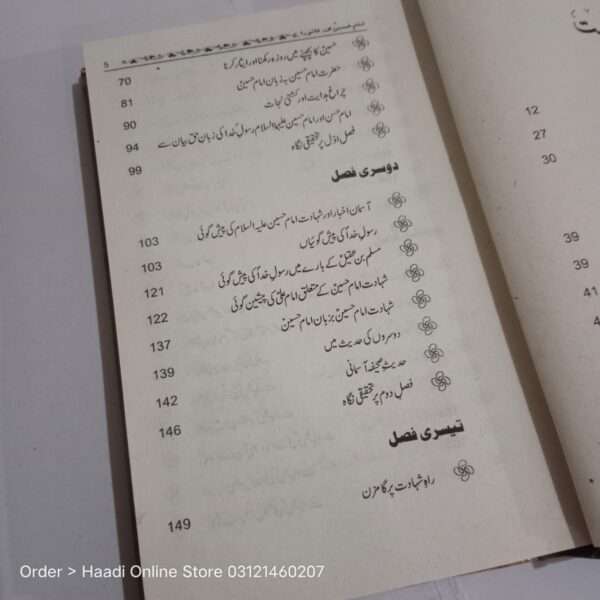 5
حسینؑ کا بچپنے میں روزہ رکھنا اور ایثار کرنا 70
حضرت امام حسینؑ بہ زبان امام حسینؑ 81
چراغ ہدایت اور کشتی نجات 90
امام حسن اور امام حسین علیہما السلام رسول خدا کی زبان حق بیان سے 94
فصل اوّل پر تحقیقی نگاہ 99
دوسری فصل
آسمان اخبار اور شہادت امام حسین علیہ السلام کی پیش گوئی 103
رسول خدا کی پیش گوئیاں 103
مسلم بن عقیلؑ کے بارے میں رسول خدا کی پیش گوئی 121
شہادت امام حسینؑ کے متعلق امام علیؑ کی پیشین گوئی 122
شہادت امام حسینؑ بزبان امام حسینؑ 137
دوسروں کی حدیث میں 139
حدیث صحیفہ آسمانی 142
فصل دوم پر تحقیقی نگاہ 146
تیسری فصل
راہ شہادت پر گامزن 149
12
27
30
39
39
41
Order > Haadi Online Store 03121460207